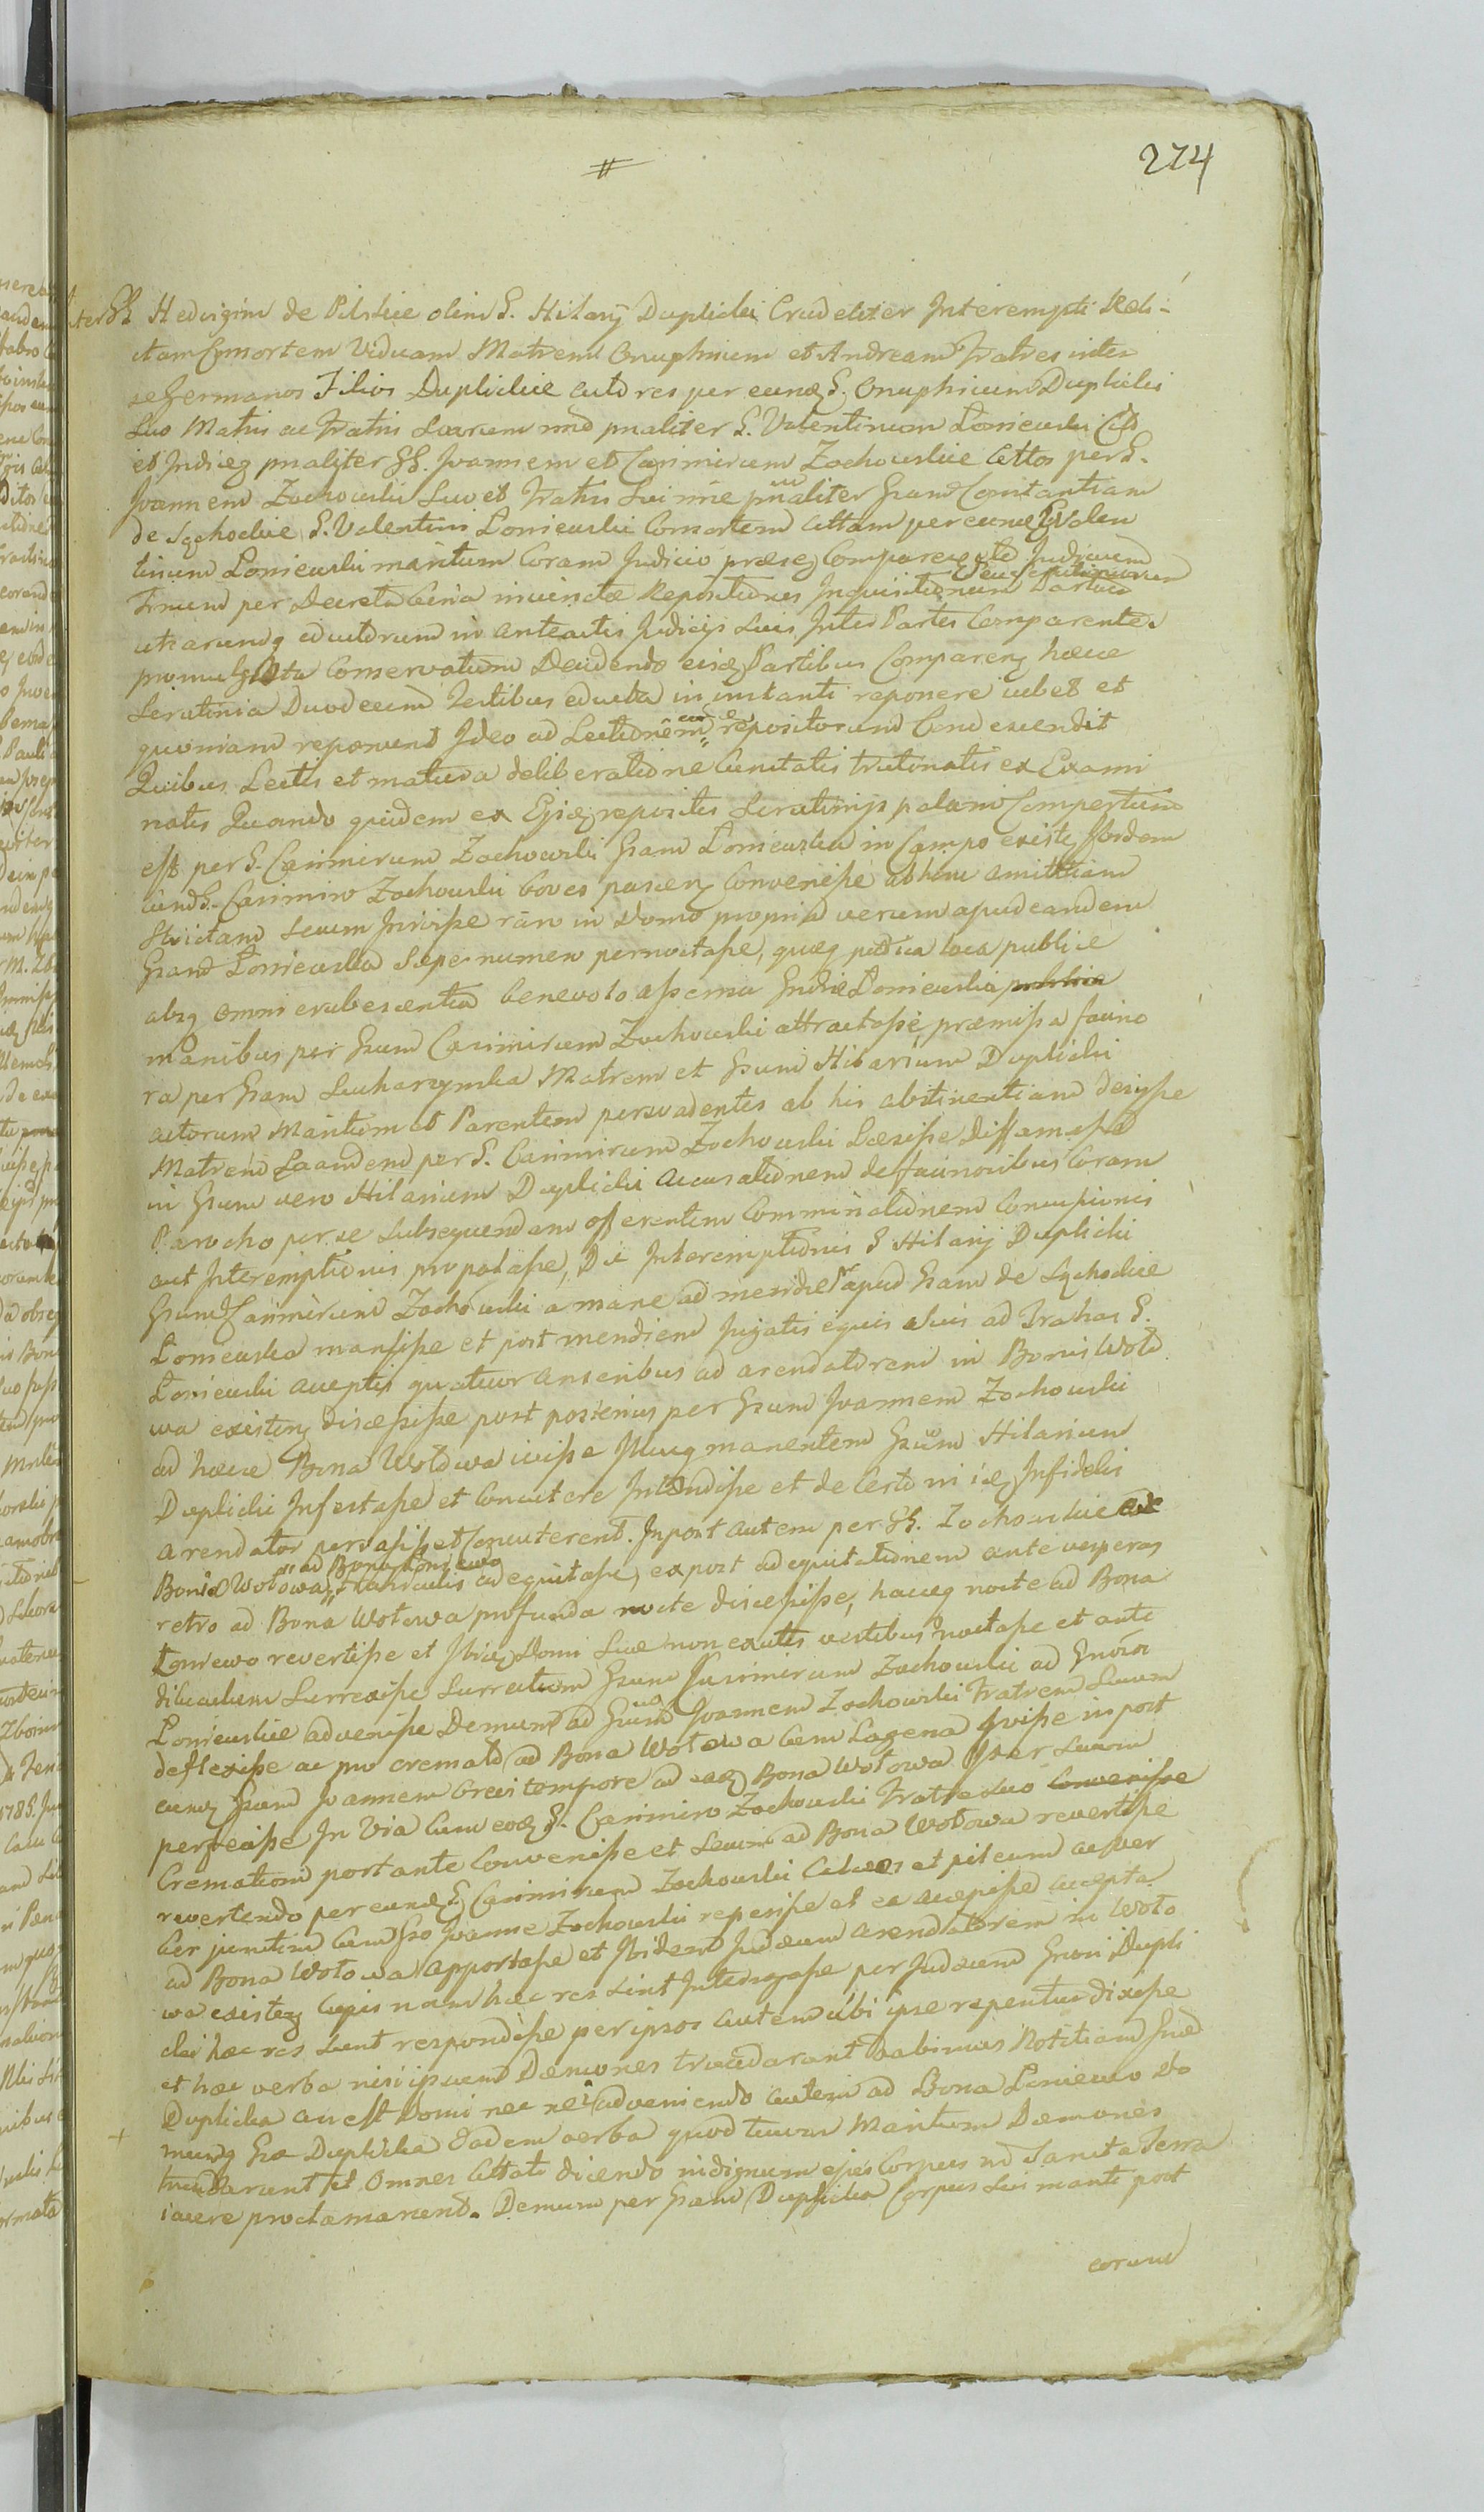 #
274
Inter GG Hedvigim de Pilskie olim G. Hilarij Duplicki Crudeliter Interempti Reli-
ctam Consortem Viduam Matrem Onuphrium et Andream Fratres inter
se Germanos Filios Duplickie Actores per eund G. Onuphrium Duplicki
Suo Matris ac Fratris Suorum nnd pnaliter G. Valentinum Łoniewski Citt
et Judicq pnaliter GG. Joannem et Casimirum Żochowskie Cittos per G.
Joannem Żochowski Suo et Fratris Sui nnie pnnaliter Gsam Constantiam
de Sąchockie G. Valentini Łoniewski Consortem Cittam per eund G Valen
tinum Łoniewski maritum Coram Judicio præsq Comparenq Judicium
Tenend per Decreta Sua iniunctæ Repositiones Inquisitionum
utrarumq eductorum in anteactis Judicijs Suis Inter Partes Comparentes
promulgata Conservatum Decidendo eisq Partibus Comparenq hæce
Scrutinia Duodecim Testibus educta in instanti reponere iubet et
quoniam reponunt Ideo ad Lectionem repositorum Cond
Quibus Lectis et matura deliberatione Cunctatis trutinatis ex Exami
natis Quando quidem ex Ejsq repositis Scrutinijs palam Compertum
est per G. Casimirum Żochowski Gsam Łoniewska in Campo existq
cum G. Casimiro Żochowski boves pascenq Convenisse abhinc amicitiam
Strictam Secum Inivisse raro in Domo propria verum apud eandem
Gsam Łoniewska Sæpenumero pernoctasse, quæq pudica loca publice
absq omni erubescentia benevolo assensu Gsdæ Łoniewska
manibus per Gsum Casimirum Żochowski attractasse, præmissa facino
ra per Gsam Sucharzynska Matrem et Gsum Hilarium Duplicki
actorum Maritum et Parentem persuadentes ab his abstinentiam
Matrem Eaandem per G. Casimirum Żochowski Læsisse diffamasse
in Gsum vero Hilarium Duplicki Accusationem de facinoribus Coram
Parocho per se Subsequendam offerentem Comminationem Concussionis
aut Interemptionis propalasse, Die Interemptionis G Hilarij Duplicki
Gsum Casimirum Żochowski a mane ad meridie apud Gsam de Sąchockie
Łoniewska mansisse et post meridiem Jugatis equis Suis ad Trahas G.
Łoniewski acceptis quatuor Anseribus ad arendatorem in Bonis Woło
wa existenq discessisse post posterius per Gsum Joannem Żochowski
ad hæce Bona Wołowa ivisse Illucq manentem Gsum Hilarium
Duplicki Infestasse et Concutere Intendisse et de Certo ni isq Infidelis
arendator persuasisset Concuterent. Inpost autem per GG. Żochowskie
Bonis Wołowa ad Bona Łoniewo adequitasse, expost adequitationem ante vesperas
retro ad Bona Wołowa profunda nocte discessisse, hacq nocte ad Bona
Łoniewo revertisse et Ibiq Domi Suæ non exutis vestibus noctasse et ante
diluculum Surrexisse Surrectum Gsum Casimirum Żochowski ad Gsnoia
Łoniewskie advenisse Demum ad Gsum Joannem Żochowski Fratrem Suum
deflexisse ac pro cremato ad Bona Wołowa Cum Lagena Ivisse inpost
eumq Gsum Joannem brevi tempore ad eaq Bona Wołowa Iter Suum
perfecisse In Via Cum eodq G. Casimiro Żochowski Fratre Suo Convenisse
Cremationi portante Convenisse et Secum ad Bona Wołowa revertisse
revertendo per eundq G Casimirum Żochowski Calceos et pileum acqver
ber junctim Cum Gso Joanne Żochowski reperisse et ea accepisse accepta
ad Bona Wołowa Apportasse et Ibidem Judæum arendatorem in Woło
wa existenq Cujus nam hæc res sint Interogasse per Judæum Gsoni Dupli
cki hæ res sunt respondisse per ipsos autem ubi ipse repentur dixisse
et hæc verba nisi ipsum Dæmones trucidarunt Dabimus Notitiam Gsæ
Duplicka an est Domi nec ne adveniendo autem ad Bona Łoniewo Do
mumq Gsæ Duplicka Eadem verba quod tuum Maritum Dæmones
trucidarunt et Omnes Cittati dicendo indignum ejus Corpus in Sancta Terra
iacere proclamarend. Demum per Gsam Duplicka Corpus Sui mariti post
eorum